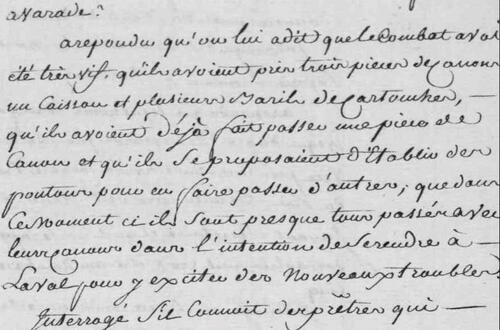 avarade?
arepondu qu'on lui adit que le Combat avoi
été très vif. qu'ils avoient pris trois pieces de Canons
un Caisson et plusieurs Barils de Cartouches, —
qu'ils avoient Déja fait passer une piece de
Canon et qu'ils Se proposaient d'Etablir des
pontons pour en faire passer d'autres; que dans
Ce Moment ci ils Sont presque tous passés avec
leurs Canons dans l'intention de Se rendre à —
Laval pour y exciter des Nouveaux troubles.
Interrogé S'il Connoit des prêtres qui —